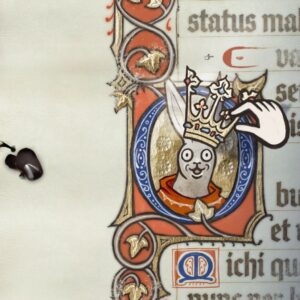 status mal
va
se
bu
et u
Michi qu